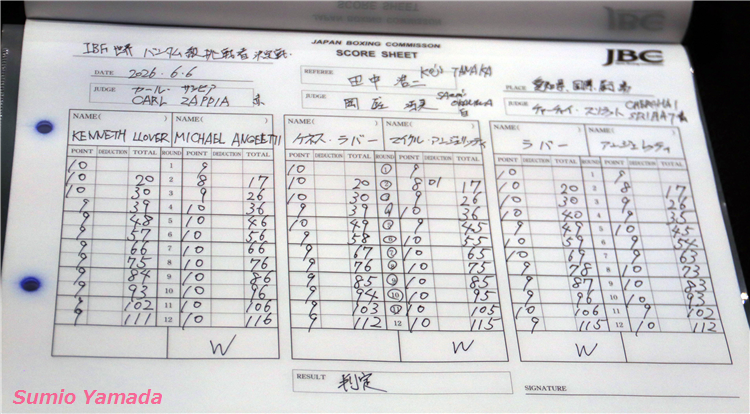 JAPAN BOXING COMMISSON
SCORE SHEET
JBC
IBF 世界 バンタム級挑戦者決定戦.
DATE 2026.6.6
REFEREE 田中 浩二 Koji TANAKA
PLACE 愛知県
JUDGE カール・ザッピア CARL ZAPPIA 赤
JUDGE 岡庭
JUDGE チャーチャイ・
NAME( ) NAME( ) NAME( ) NAME( ) NAME( ) NAME( )
KENNETH LLOVER MICHAEL ANGELETTI ケネス・ラバー マイケル・アンジェレッティ ラバー アンジェレッティ
POINT DEDUCTION TOTAL ROUND POINT DEDUCTION TOTAL POINT DEDUCTION TOTAL ROUND POINT DEDUCTION TOTAL POINT DEDUCTION TOTAL ROUND POINT DEDUCTION TOTAL
10 1 9 10 1 9 10 1 9
10 20 2 8 17 10 20 2 8 01 17 10 20 2 8 17
10 30 3 9 26 10 30 3 9 26 10 30 3 9 26
9 39 4 10 36 9 39 4 10 36 10 40 4 9 35
9 48 5 10 46 10 49 5 9 45 9 49 5 10 45
9 57 6 10 56 9 58 6 10 55 10 59 6 9 54
9 66 7 10 66 9 67 7 10 65 10 69 7 9 63
9 75 8 10 76 9 76 8 10 75 9 78 8 10 73
9 84 9 10 86 9 85 9 10 85 9 87 9 10 83
9 93 10 10 96 9 94 10 10 95 9 96 10 10 93
9 102 11 10 106 9 103 11 10 105 10 106 11 9 102
9 111 12 10 116 9 112 12 10 115 9 115 12 10 112
W W W
RESULT 判定
SIGNATURE
Sumio Yamada